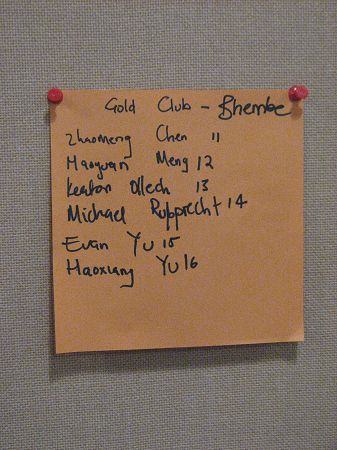 Gold Club - Bhembe
Zhaomeng Chen 11
Haoyuan Meng 12
Keaton Ollech 13
Michael Rupprecht 14
Evan Yu 15
Haoxiang Yu 16